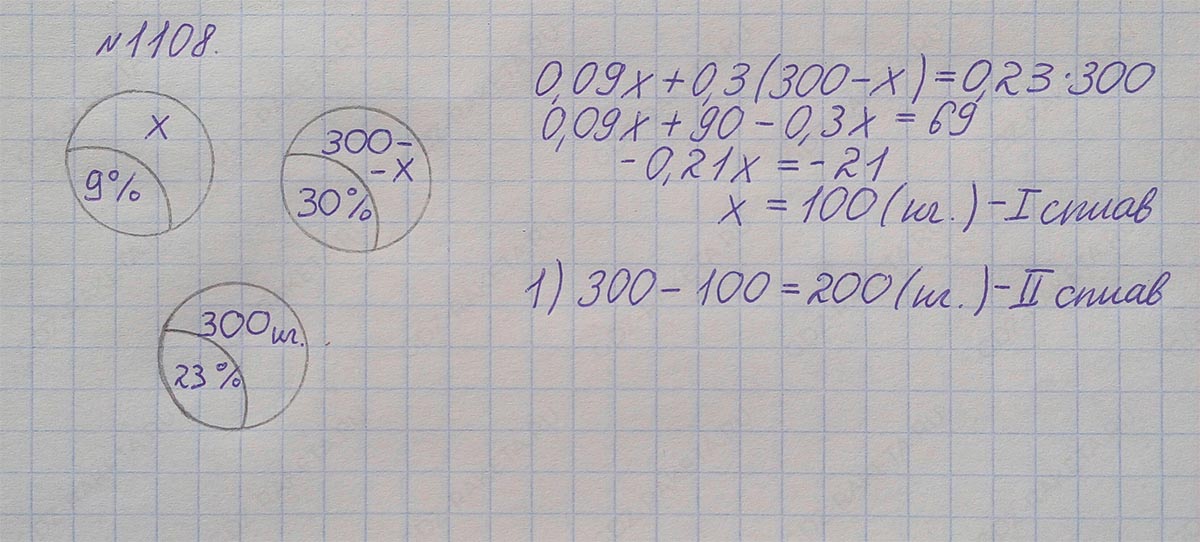 №1108.
x
9%
300-
-x
30%
300 кг.
23%
0,09x+0,3(300-x)=0,23·300
0,09x+90-0,3x=69
-0,21x=-21
x=100(кг.)-I сплав
1) 300-100=200(кг.)-II сплав